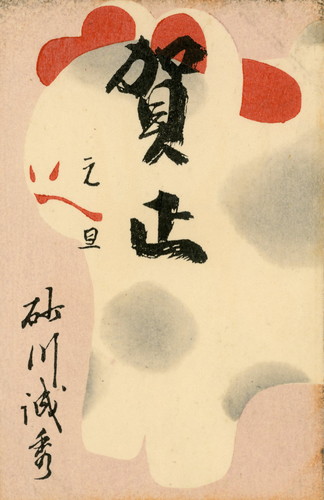 賀正
元旦
砂川誠秀